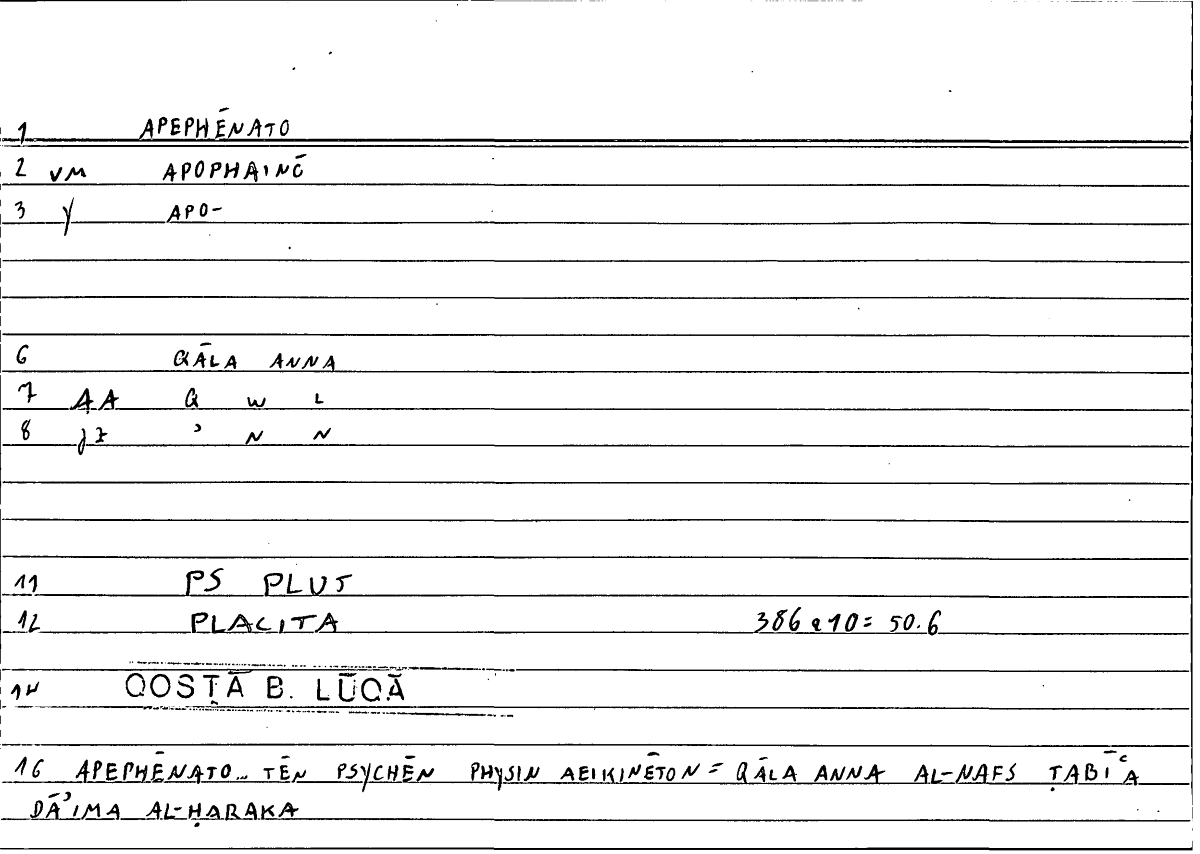 1 APEPHĒNATO
2 VM APOPHAINŌ
3 Y APO-
6 QĀLA ANNA
7 AA Q W L
8 JZ ʾ N N
11 PS PLUT
12 PLACITA 386a10 = 50.6
14 QOSṬĀ B. LŪQĀ
16 APEPHĒNATO... TĒN PSYCHĒN PHYSIN AEIKINĒTON = QĀLA ANNA AL-NAFS ṬABĪʿA
DĀʾIMA AL-ḤARAKA